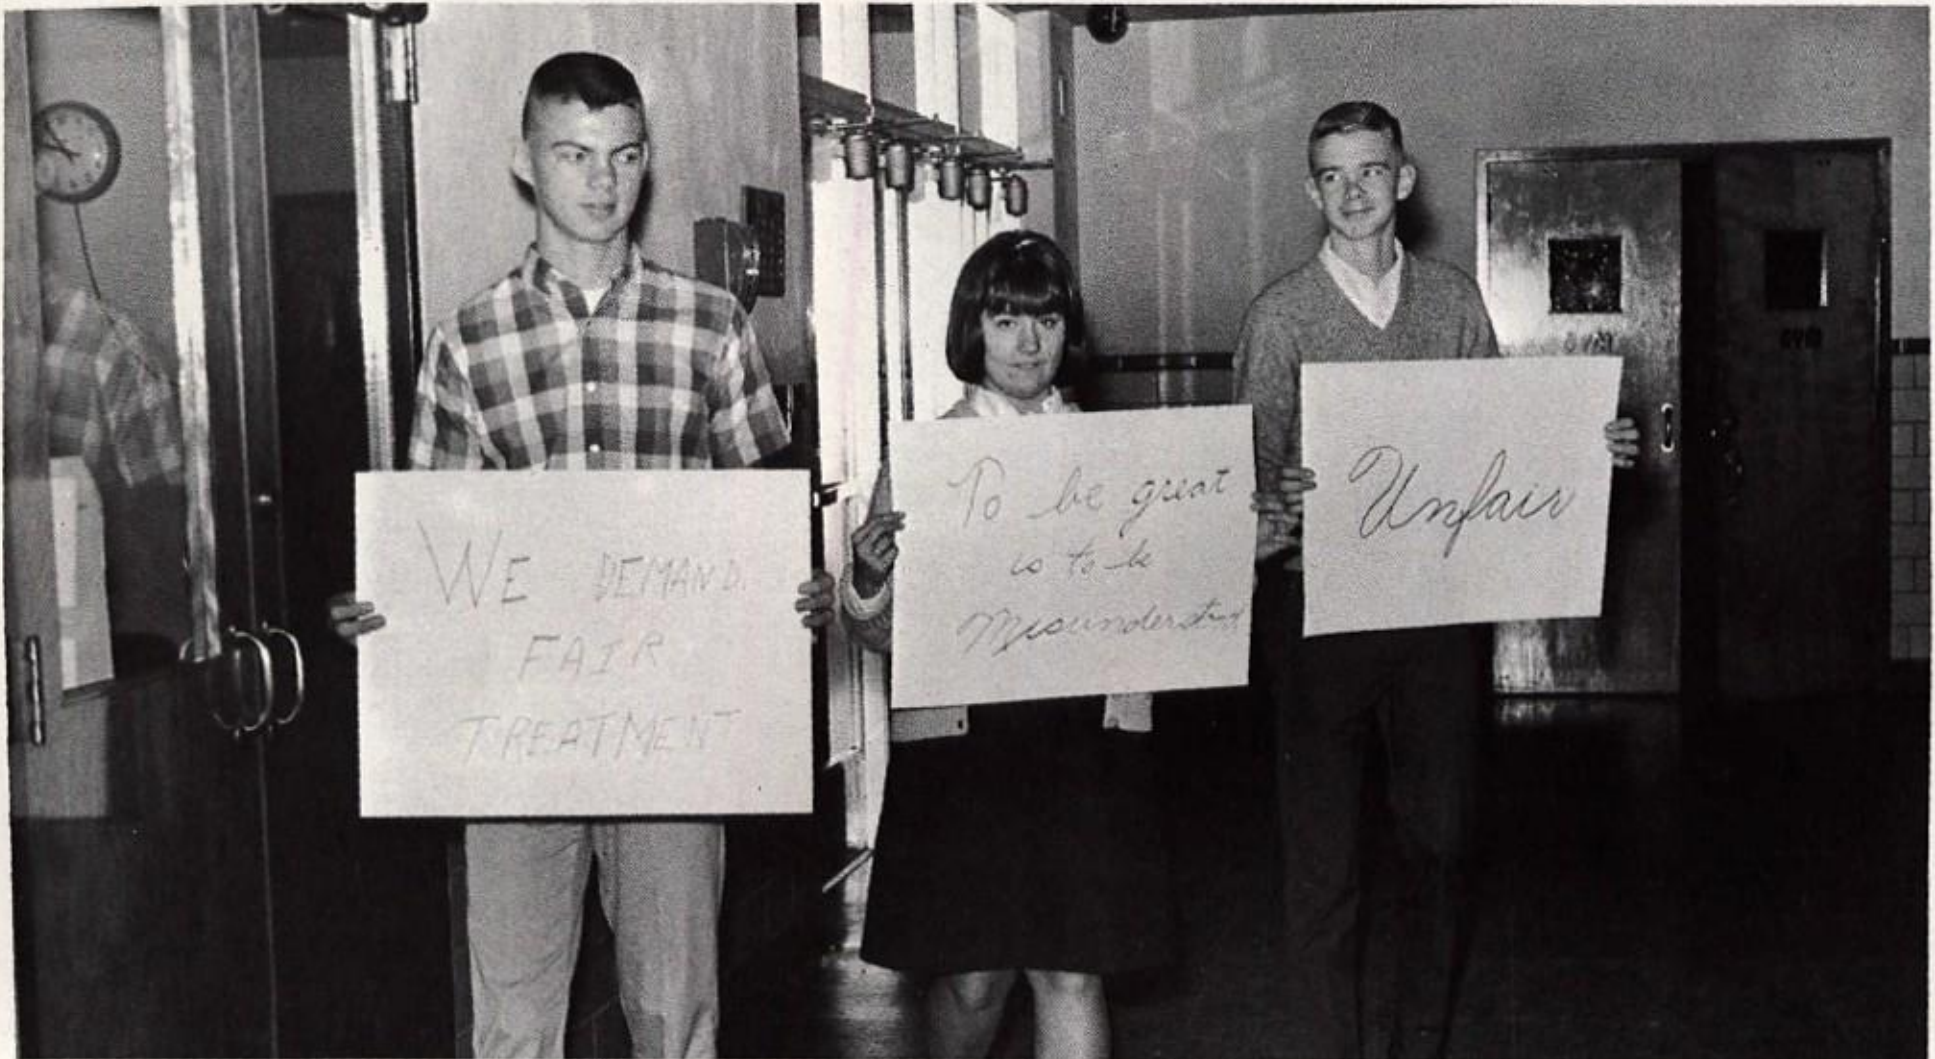 WE DEMAND
FAIR
TREATMENT
To be great
is to be
Misunderstood
Unfair
GYM
GYM